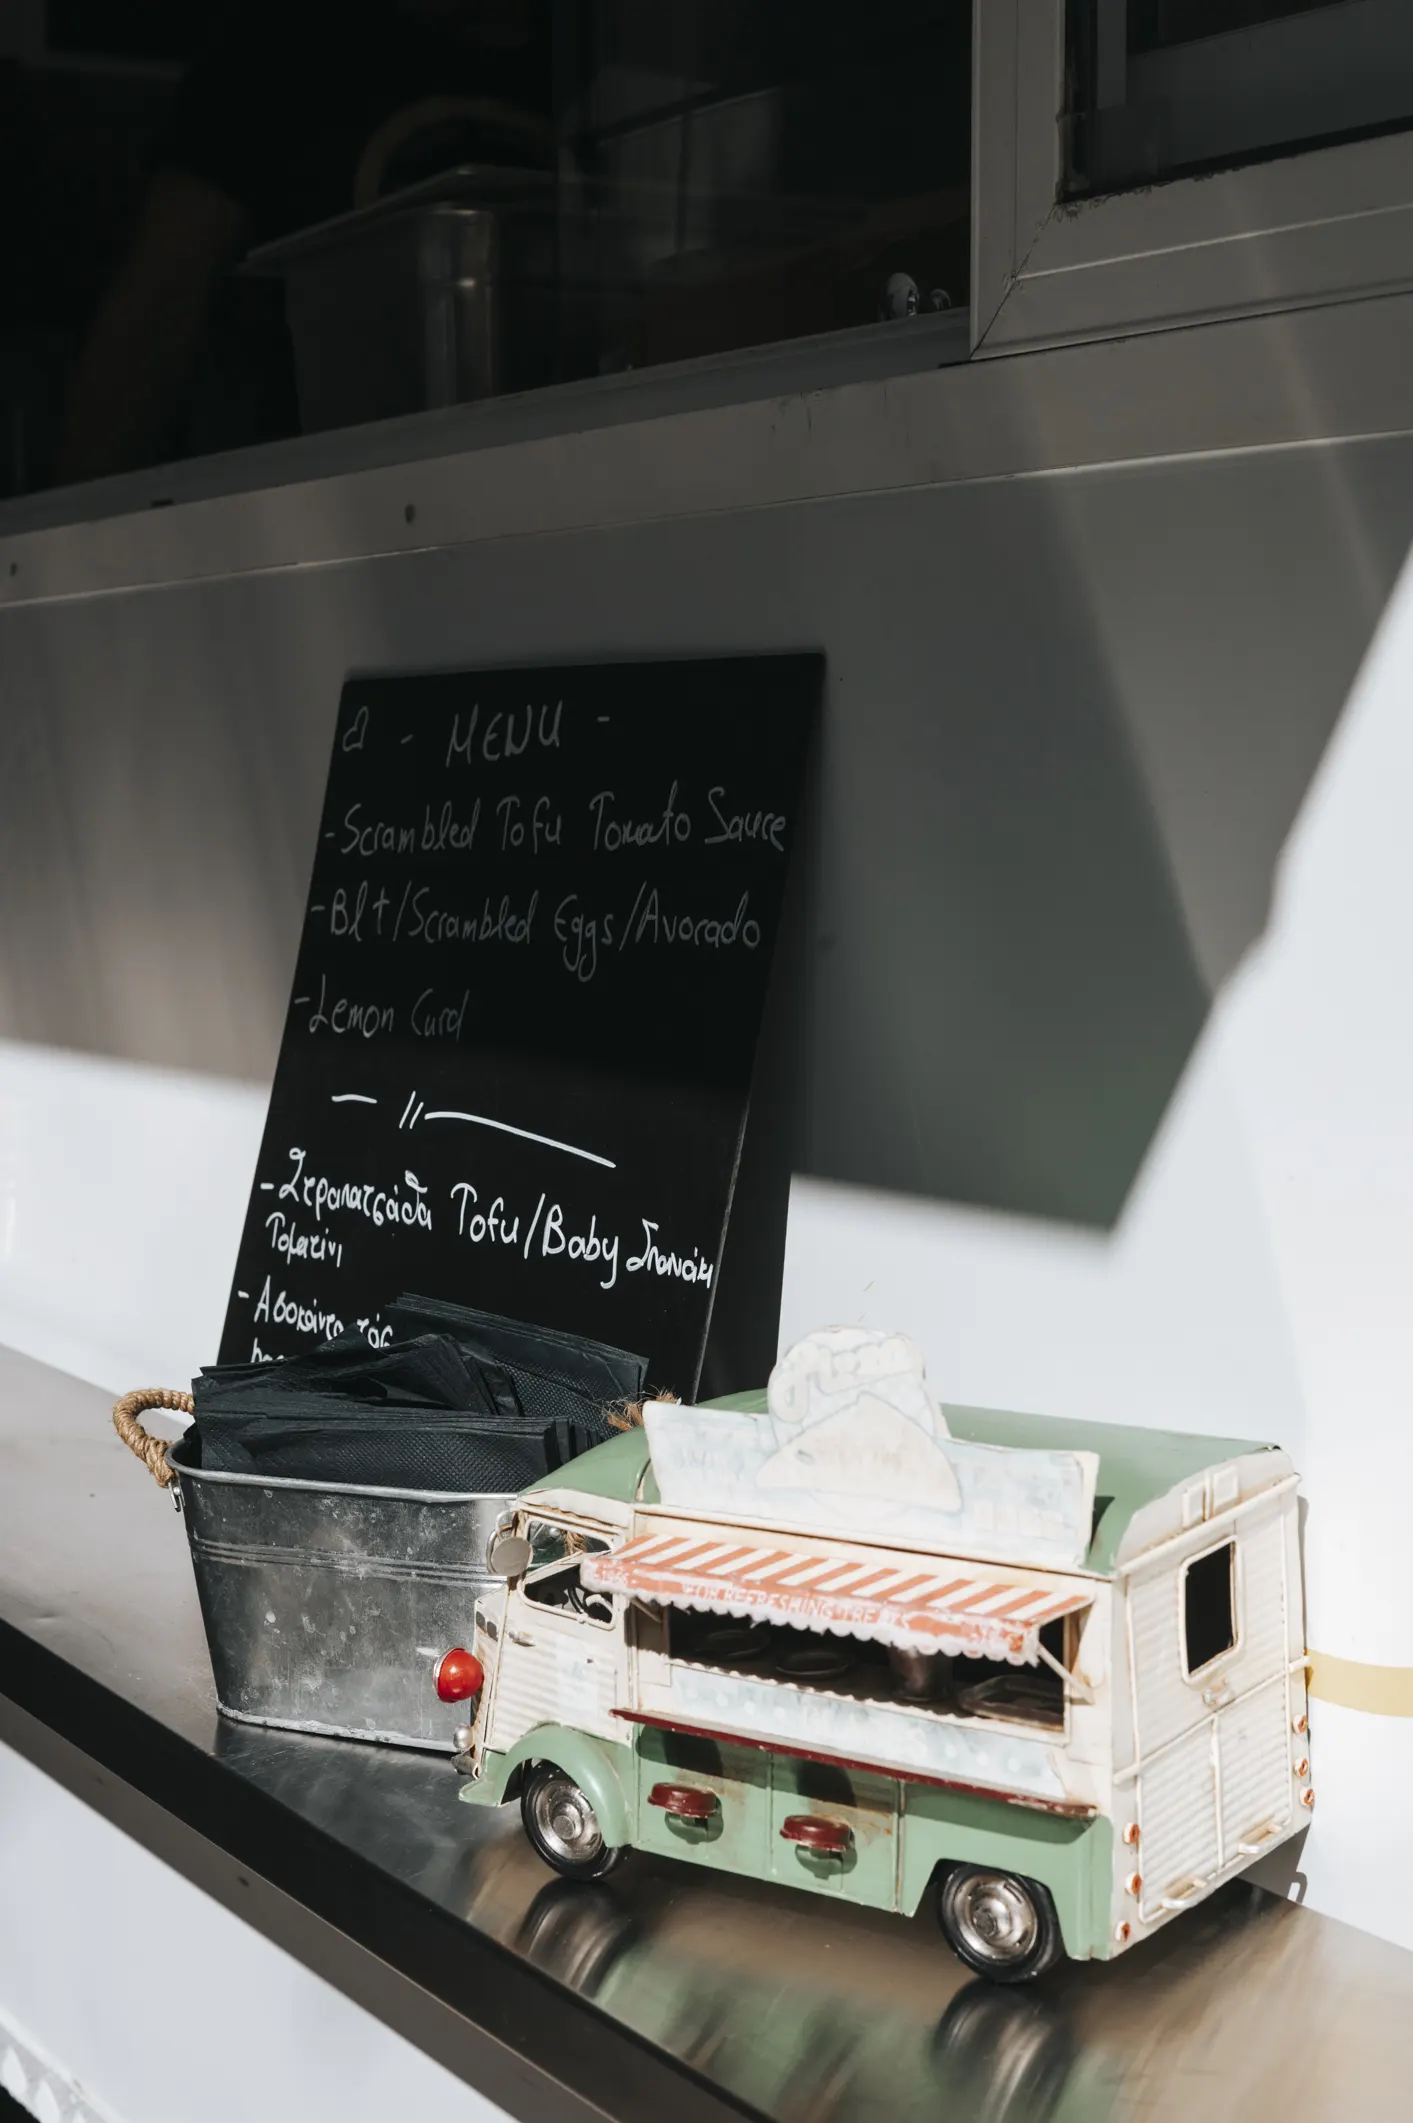 - MENU -
-Scrambled Tofu Tomato Sauce
-Blt/Scrambled Eggs/Avocado
-Lemon Curd
-Στραπατσάδα Tofu/Baby Σπανάκι
Τοματίνι
-Αβοκάντο τόσ
FOR REFRESHING TREATS